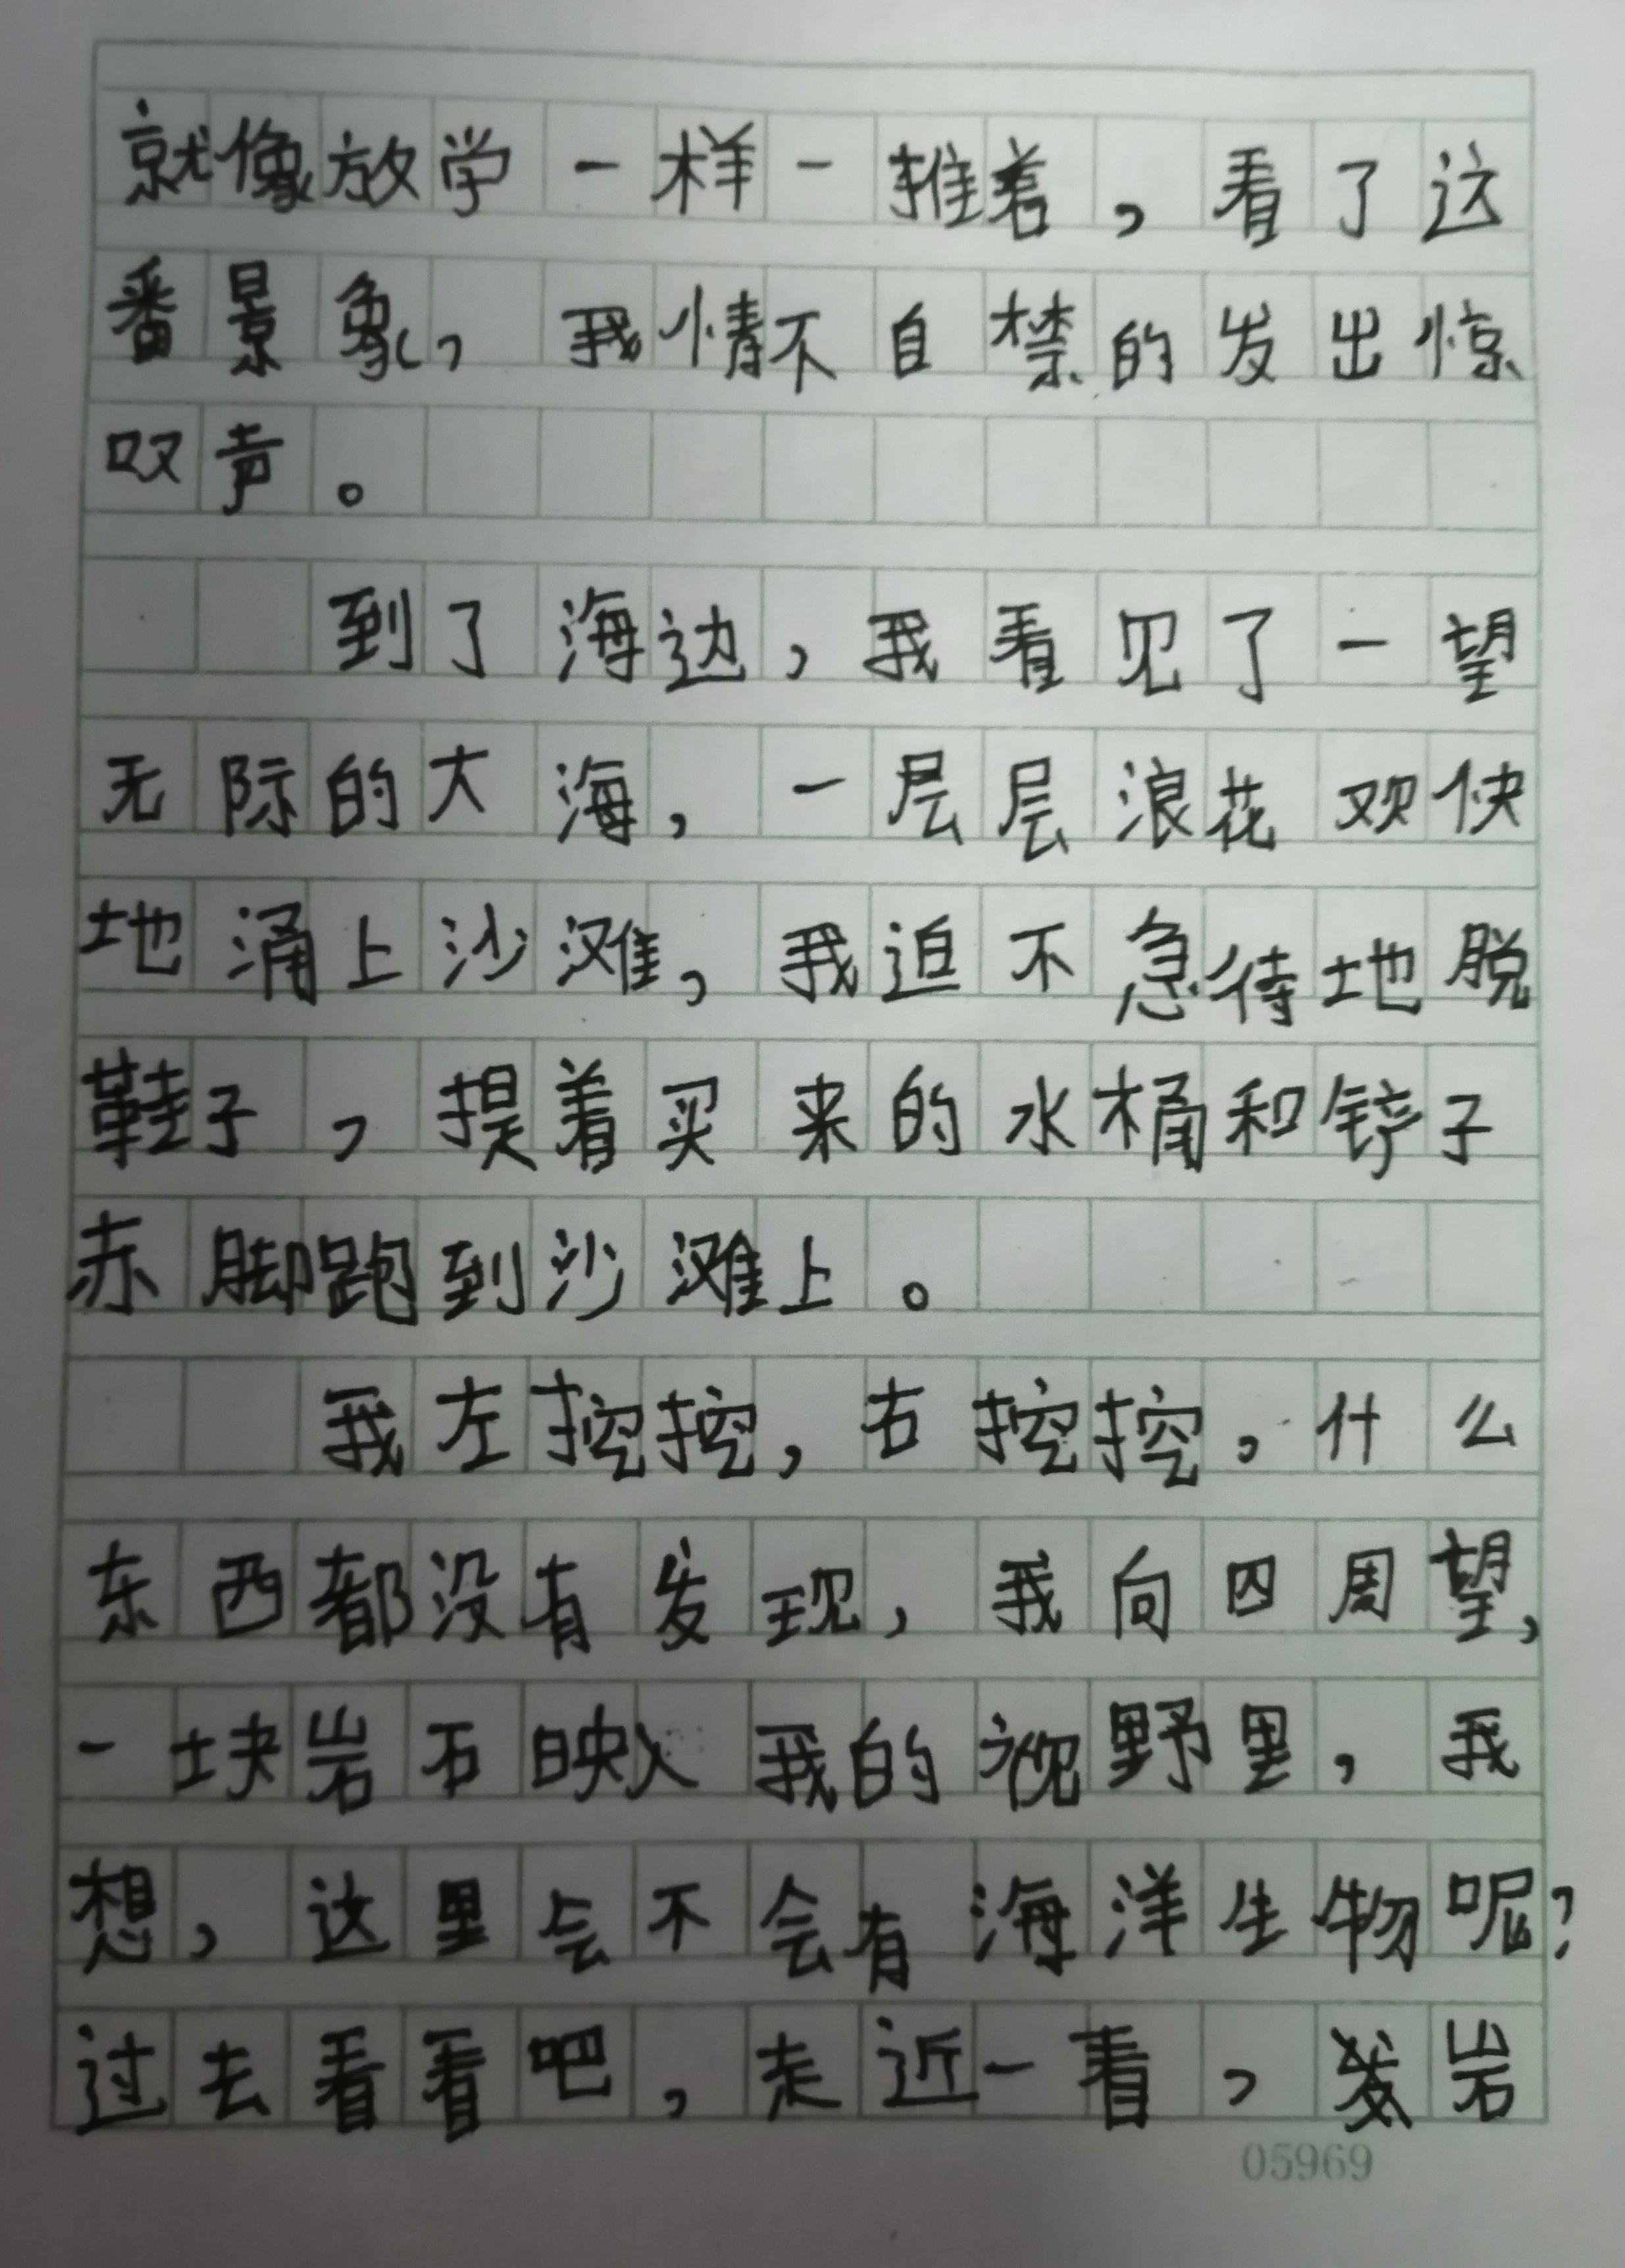 就像放学一样一推着，看了这
番景象，我情不自禁的发出惊
叹声。
到了海边，我看见了一望
无际的大海，一层层浪花欢快
地涌上沙滩，我迫不急待地脱
鞋子，提着买来的水桶和铲子
赤脚跑到沙滩上。
我左挖挖，右挖挖，什么
东西都没有发现，我向四周望，
一块岩石映入我的视野里，我
想，这里会不会有海洋生物呢？
过去看看吧，走近一看，岩
05969